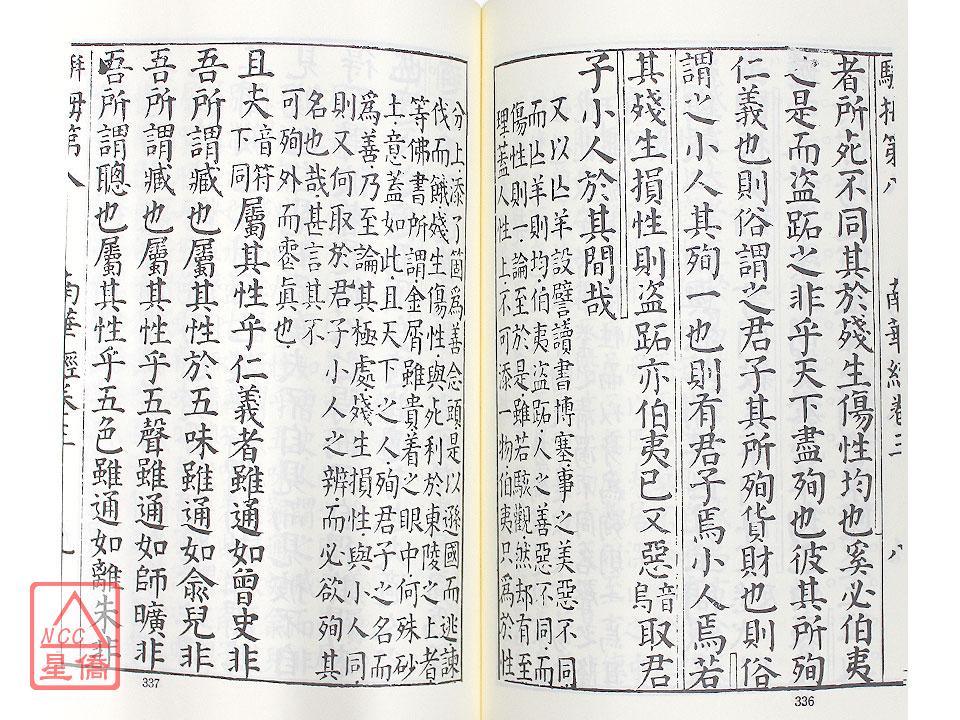 駢拇第八 南華經卷三 八
者所死不同其於殘生傷性均也奚必伯夷
之是而盜跖之非乎天下盡殉也彼其所殉
仁義也則俗謂之君子其所殉貨財也則俗
謂之小人其殉一也則有君子焉小人焉若
其殘生損性則盜跖亦伯夷已又惡音烏取君
子小人於其間哉
又以亡羊設譬讀書博塞事之美惡不同
而亡羊則均伯夷盜跖人之善惡不同而
傷性則一論至於是雖若駭觀然却有至
理蓋人性上不可添一物伯夷只爲於性
336
分上添了箇爲善念頭是以遜國而逃諫
伐而餓殘生傷性與死利於東陵之上者
等佛書所謂金屑雖貴着之眼中何殊砂
土意蓋如此且天下之人殉君子之名而
爲善乃至論其極處殘生損性與小人同
則又何取於君子小人之辨而必欲殉其
名也哉甚言其不
可殉外而喪眞也
且夫音符下同屬其性乎仁義者雖通如曾史非
吾所謂臧也屬其性於五味雖通如俞兒非
吾所謂臧也屬其性乎五聲雖通如師曠非
吾所謂聰也屬其性乎五色雖通如離朱非
拇第八 南華經卷三
337
NCC
星僑